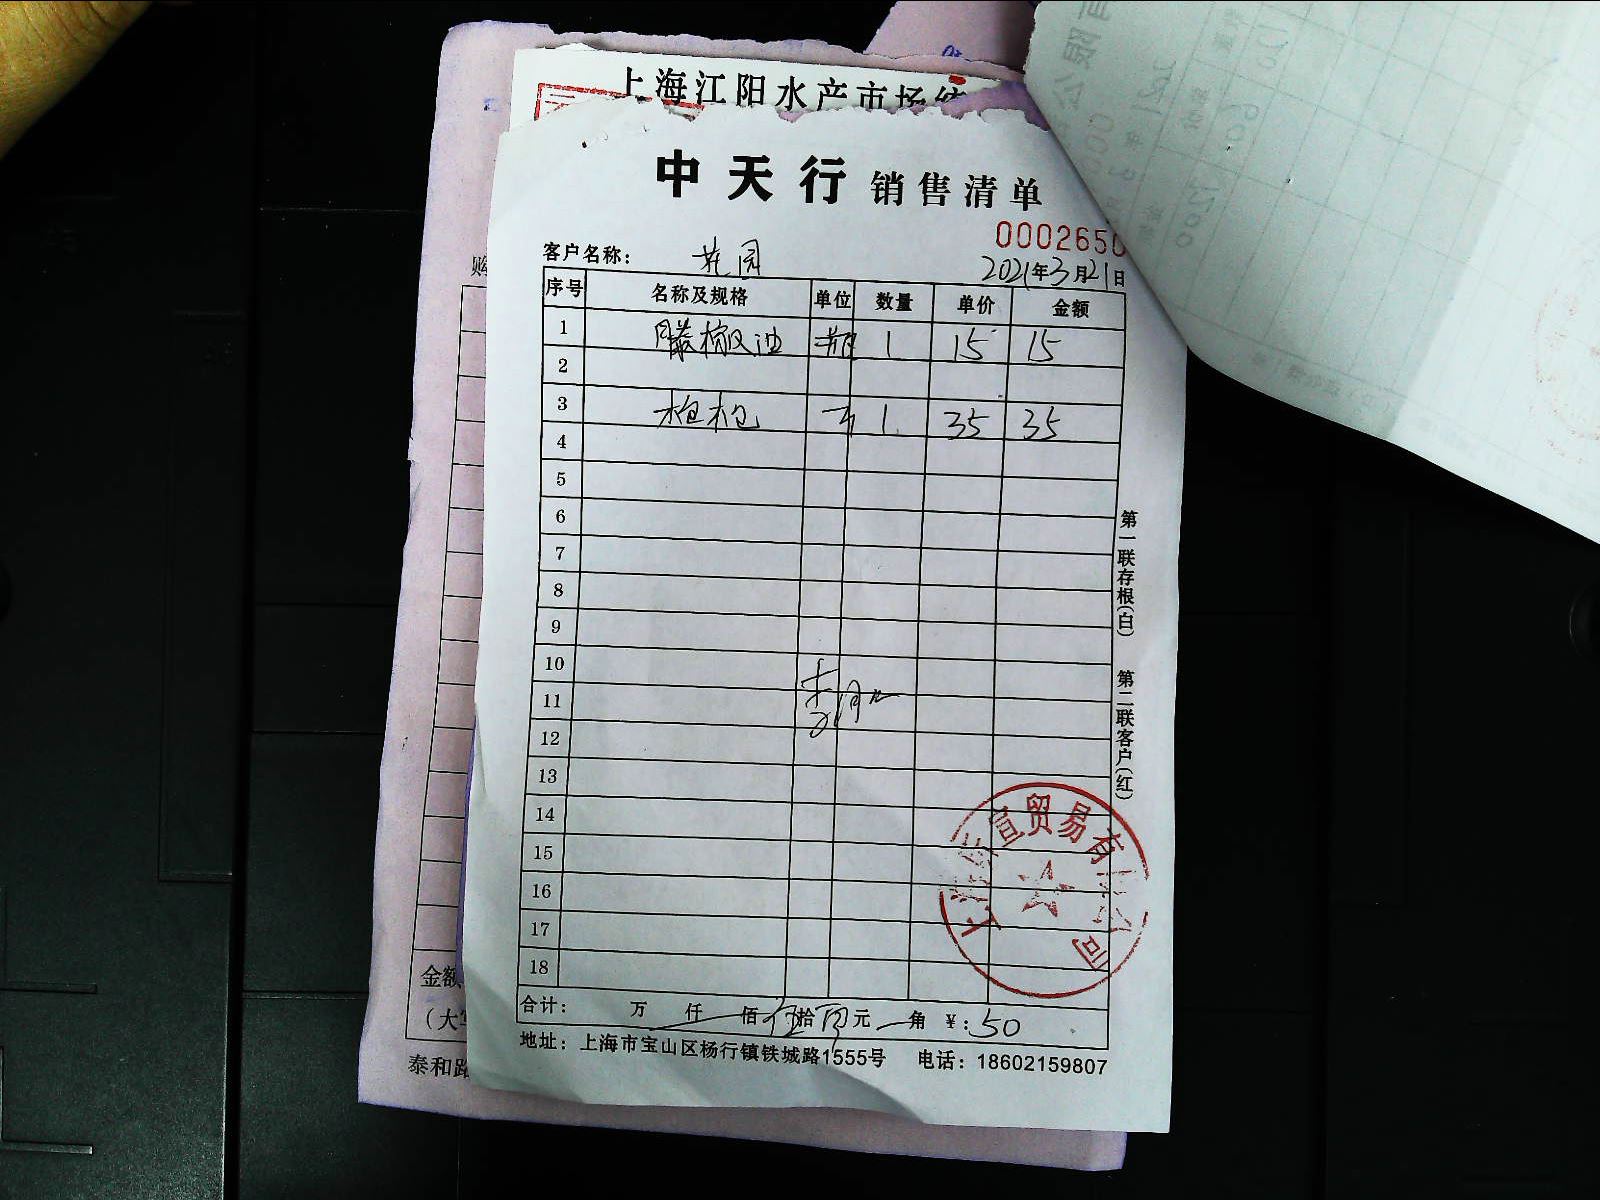 上海江阳水产市场统
中天行 销售清单
0002650
客户名称： 花园 2021年3月21日
序号 名称及规格 单位 数量 单价 金额
1 藤椒油 瓶 1 15 15
2
3 1 35 35
4
5
6
7
8
9
10
11
12
13
14
15
16
17
18
合计： 万 仟 佰 伍拾 元 角 ¥：50
地址：上海市宝山区杨行镇铁城路1555号 电话：18602159807
第一联存根(白) 第二联客户(红)
宣贸易有限公司
购
金额
（大写
泰和路